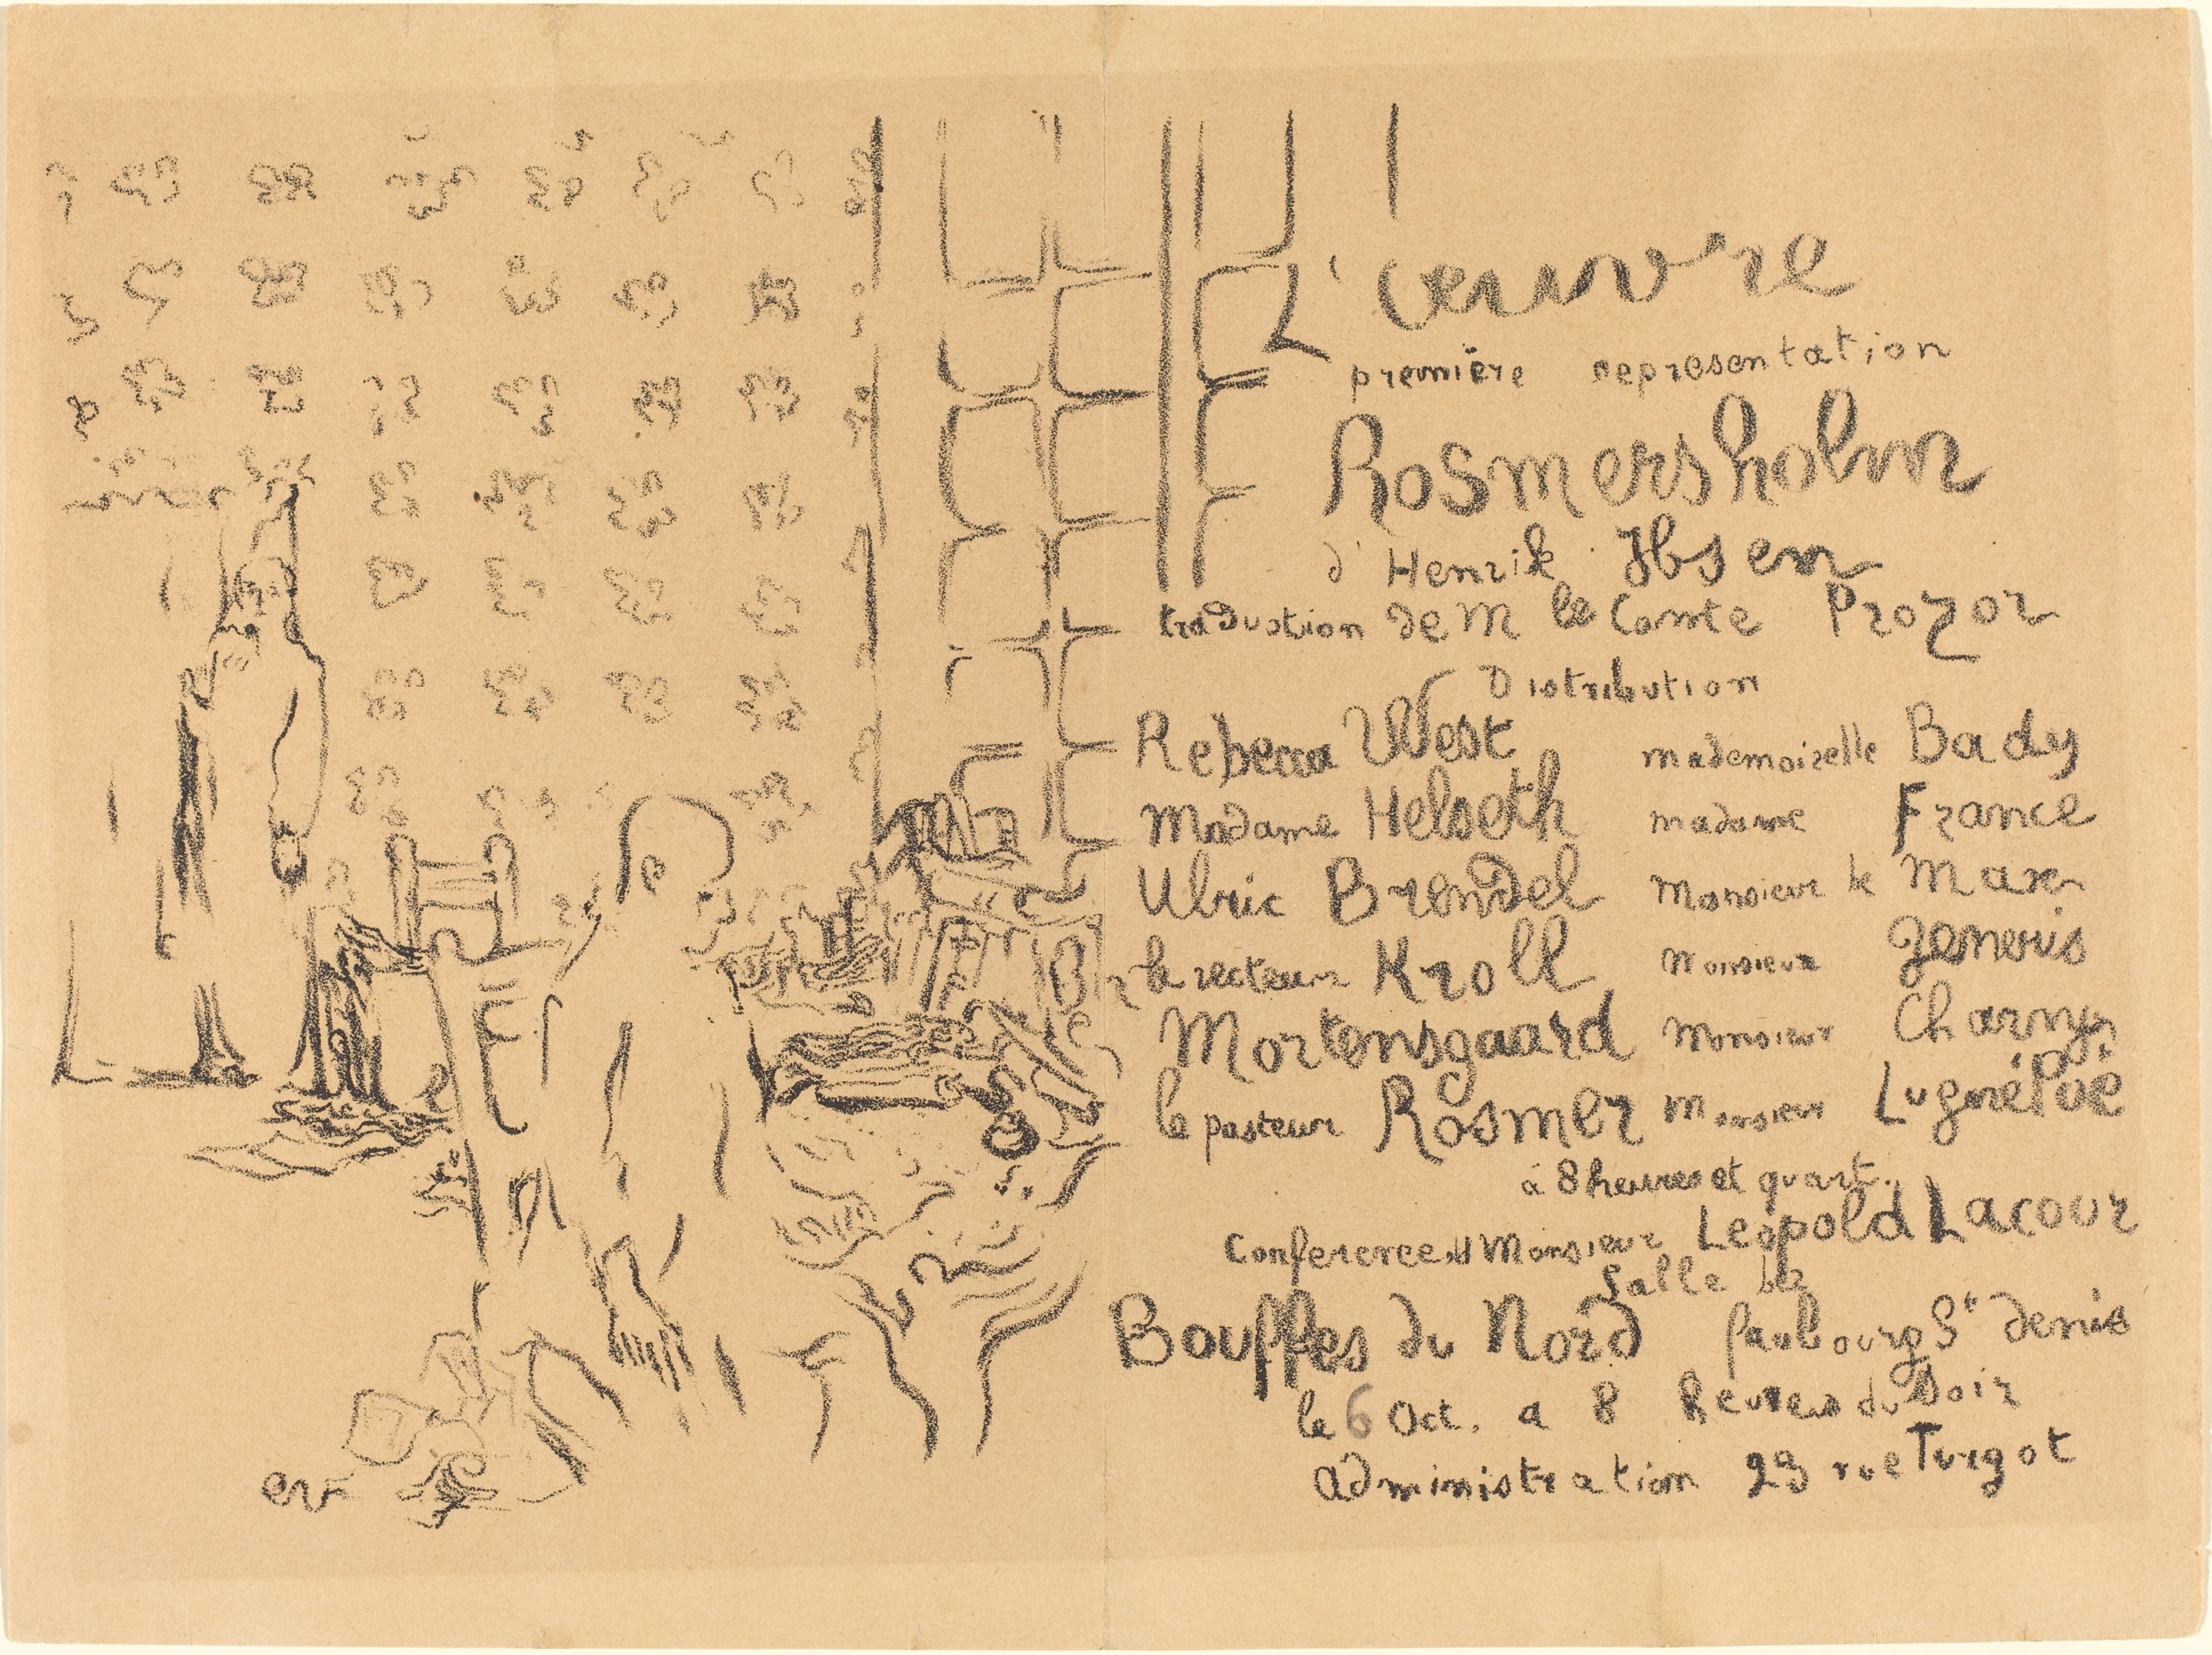 L'œuvre
première representation
Rosmersholm
d'Henrik Ibsen
traduction de M le Comte Prozor
Distribution
Rebecca West mademoiselle Bady
Madame Helseth madame France
Ulric Brendel Monsieur de Max
le recteur Kroll Monsieur
Mortensgaard Monsieur Charny
le pasteur Rosmer Monsieur Lugné Poë
à 8 heures et quart.
Conference de Monsieur Leopold Lacour
Salle des
Bouffes du Nord faubourg St denis
le 6 Oct. a 8 heures du Soir
administration 23 rue Turgot
ev